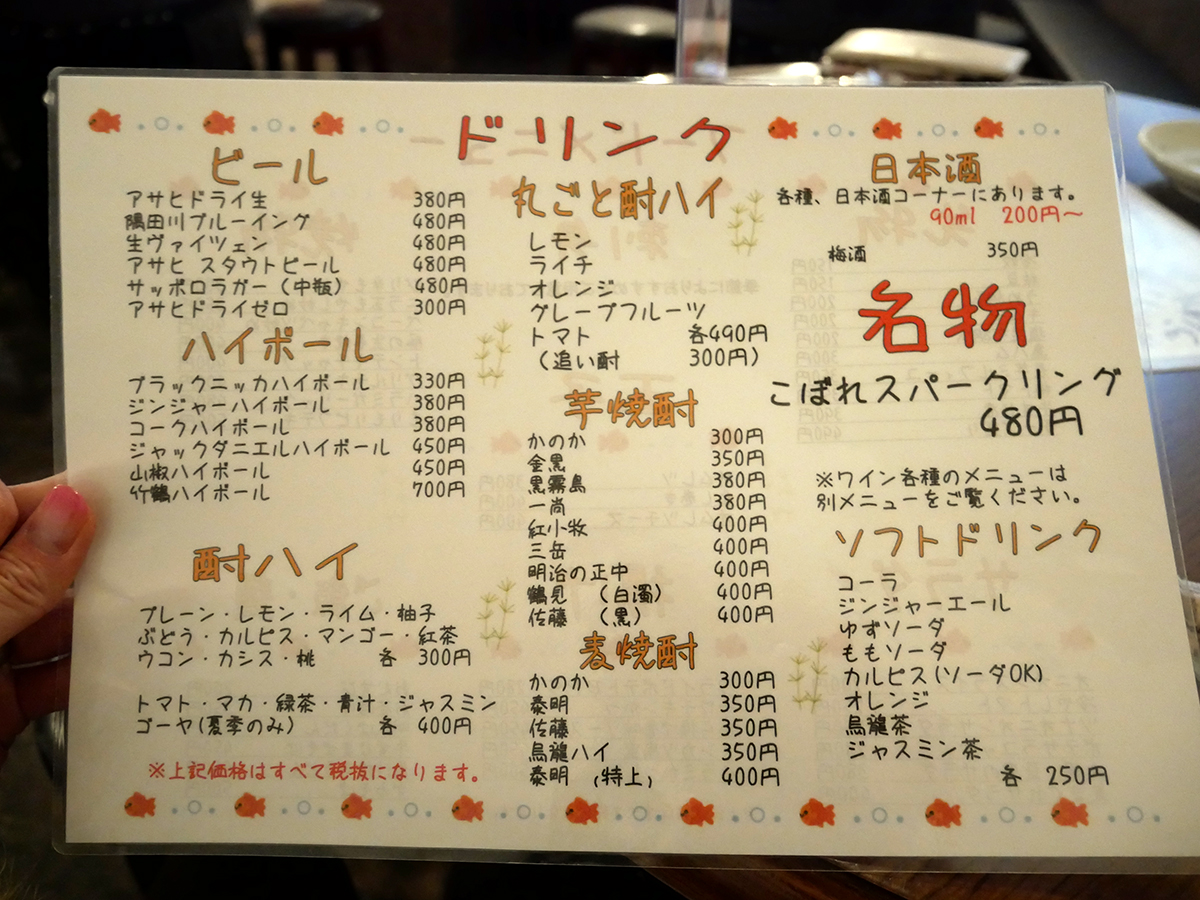 ドリンク
ビール
アサヒドライ生 380円
隅田川ブルーイング 480円
生ヴァイツェン 480円
アサヒ スタウトビール 480円
サッポロラガー（中瓶） 480円
アサヒドライゼロ 300円
ハイボール
ブラックニッカハイボール 330円
ジンジャーハイボール 380円
コークハイボール 380円
ジャックダニエルハイボール 450円
山椒ハイボール 450円
竹鶴ハイボール 700円
酎ハイ
プレーン・レモン・ライム・柚子
ぶどう・カルピス・マンゴー・紅茶
ウコン・カシス・桃 各 300円
トマト・マカ・緑茶・青汁・ジャスミン
ゴーヤ(夏季のみ) 各 400円
※上記価格はすべて税抜になります。
丸ごと酎ハイ
レモン
ライチ
オレンジ
グレープフルーツ
トマト 各490円
（追い酎 300円）
芋焼酎
かのか 300円
金黒 350円
黒霧島 380円
一尚 380円
紅小牧 400円
三岳 400円
明治の正中 400円
鶴見 （白濁） 400円
佐藤 （黒） 400円
麦焼酎
かのか 300円
泰明 350円
佐藤 350円
烏龍ハイ 350円
泰明 （特上） 400円
日本酒
各種、日本酒コーナーにあります。
90ml 200円～
梅酒 350円
名物
こぼれスパークリング
480円
※ワイン各種のメニューは
別メニューをご覧ください。
ソフトドリンク
コーラ
ジンジャーエール
ゆずソーダ
ももソーダ
カルピス(ソーダOK)
オレンジ
烏龍茶
ジャスミン茶
各 250円